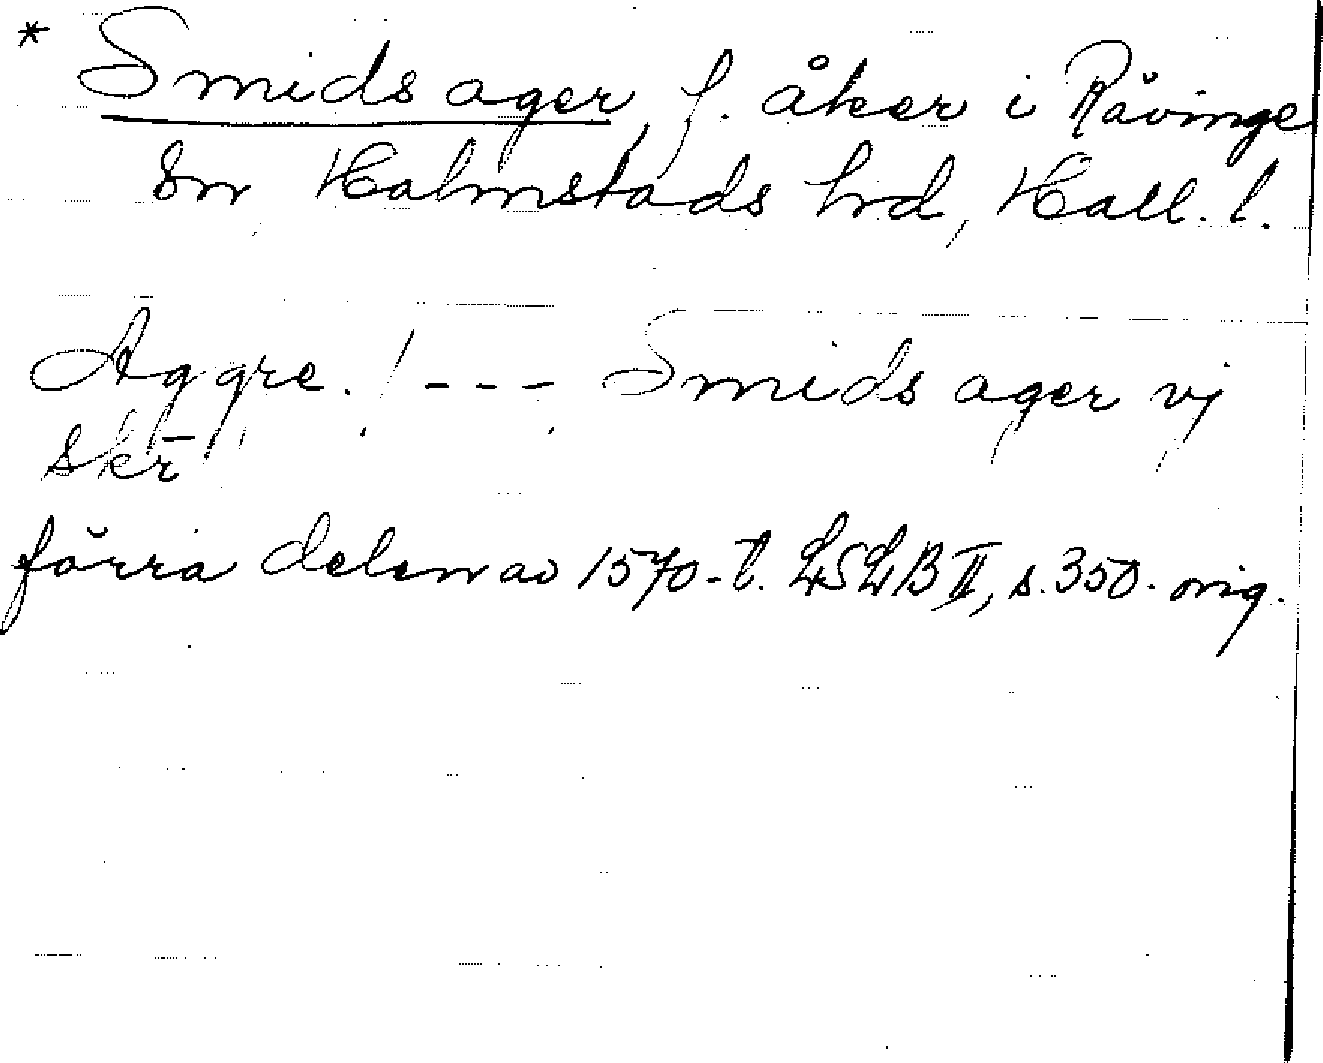 * Smids ager, f. åker i Råvinge
sn Halmstads hrd, Hall. l.
Aggre. / --- Smids ager vj
skr̄
förra delen av 1570-t. LSLB II, s. 350. orig.